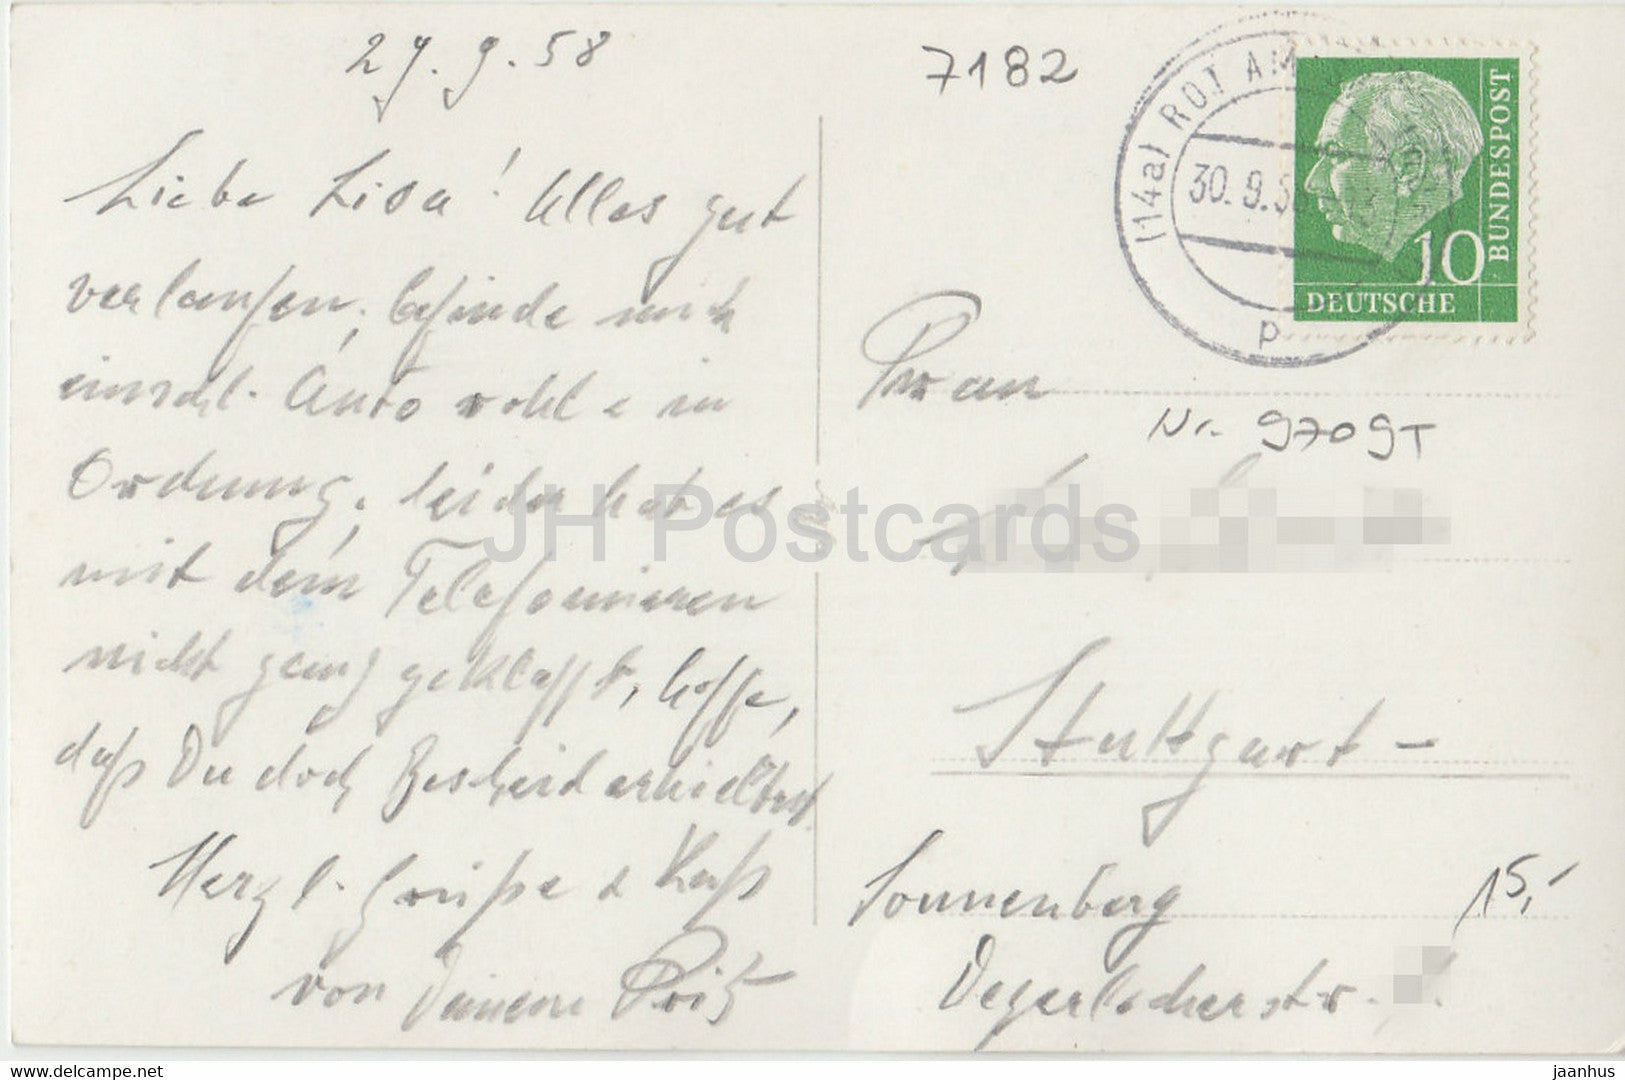 29.9.58
Liebe Lisa! Alles gut
verlaufen, befinde mich
einschl. Auto wohl & in
Ordnung, leider hat es
mit dem Telefonieren
nicht ganz geklappt, hoffe,
daß Du doch Bescheid erhieltest.
Herzl. Grüße & Kuß
von Deinem Fritz
7182
(14a) ROT AM
30.9.5
p
DEUTSCHE
BUNDESPOST
10
Frau
Nr. 9709T
Stuttgart-
Sonnenberg
Degerlocherstr.
15,-
JH Postcards
www.delcampe.net
jaanhus